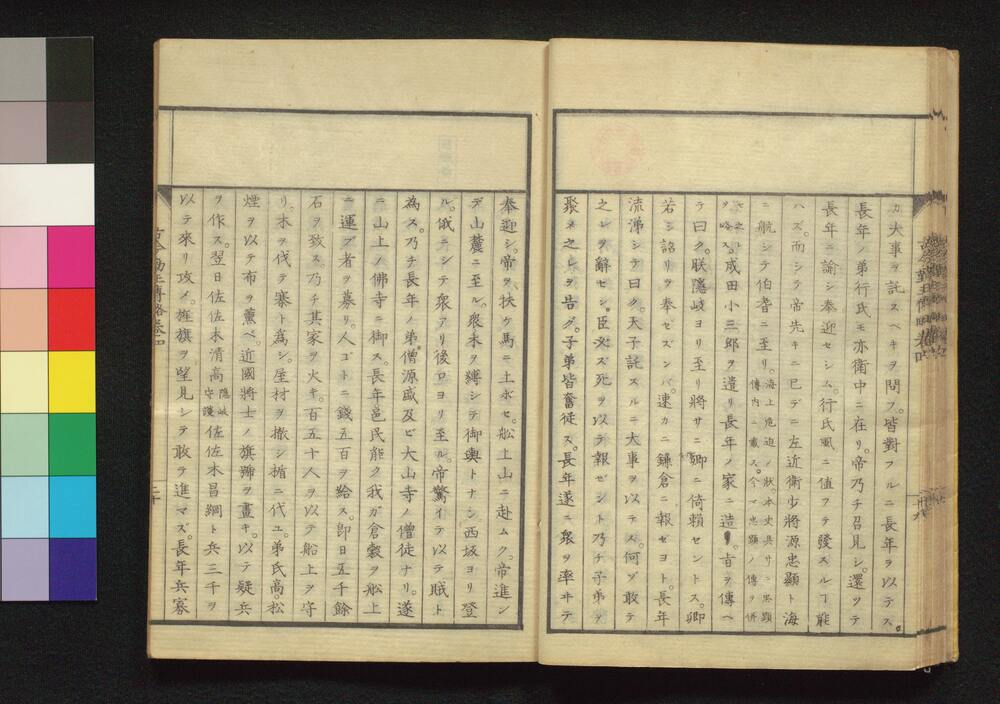 カ大事ヲ託スベキヲ問フ。皆對フルニ長年ヲ以テス。
長年ノ弟行氏モ亦衛中ニ在リ。帝乃チ召見シ。還ツテ
長年ニ諭シ奉迎セシム。行氏風ニ値フテ發スルヿ能
ハズ。而シテ帝先キニ已デニ左近衛少將源忠顯ト海
ニ航シテ伯耆ニ至リ。海上危迫ノ狀。本史具サニ忠顯
傳内ニ載ス。今マ忠顯ノ傳ヲ併
セテ之レ
ヲ略ス。成田小三郎ヲ遣リ長年ノ家ニ造リ。旨ヲ傳ヘ
テ曰ク。朕隱岐ヨリ至リ將サニ卿ニ倚賴セントス。卿
若シ詔リヲ奉ゼズンバ。速カニ鎌倉ニ報ゼヨト。長年
流涕シテ曰ク。天子託スルニ大事ヲ以テス。何ゾ敢テ
之レヲ辭セン。臣必ズ死ヲ以テ報ゼント乃チ子弟ヲ
聚メ之レヲ告グ。子弟皆奮從ス。長年遂ニ衆ヲ率ヰテ
奉迎シ。帝ヲ扶ケ馬ニ上ホセ。舩上山ニ赴ムク。帝進ン
デ山麓ニ至ル。衆米ヲ縛シテ御輿トナシ西坂ヨリ登
ル。俄ニシテ衆アリ後ロヨリ至ル。帝驚イテ以テ賊ト
為ス。乃チ長年ノ弟僧源盛及ビ大山寺ノ僧徒ナリ。遂
ニ山上ノ佛寺ニ御ス。長年邑民能ク我ガ倉穀ヲ舩上
ニ運ブ者ヲ募リ。人ゴトニ錢五百ヲ給ス。即日五千餘
石ヲ致ス。乃チ其家ヲ火キ。百五十人ヲ以テ船上ヲ守
リ。木ヲ伐テ寨ト為シ。屋材ヲ撤シ楯ニ代ユ。弟氏高。松
煙ヲ以テ布ヲ薫ベ。近國將士ノ旗號ヲ畫キ。以テ疑兵
ヲ作ス。翌日佐佐木清高隱岐
守護佐佐木昌綱ト兵三千ヲ
以テ來リ攻ム。旌旗ヲ望見シテ敢テ進マズ。長年兵寡